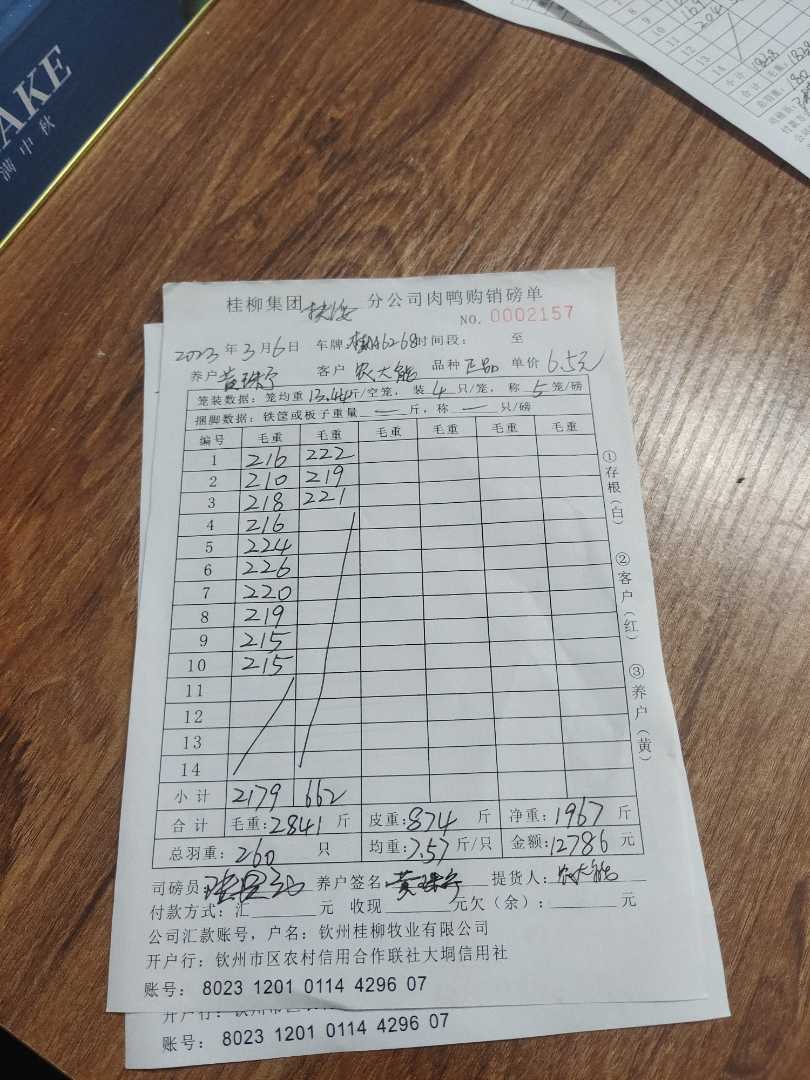 AKE
满中秋
桂柳集团 扶绥 分公司肉鸭购销磅单
NO. 0002157
2023年3月6日 车牌: A6268 时间段: 至
养户 黄珠宁 客户 农大能 品种 正品 单价 6.5元
笼装数据: 笼均重 13.44 斤/空笼, 装 4 只/笼, 称 5 笼/磅
捆脚数据: 铁筐或板子重量 — 斤, 称 — 只/磅
编号 毛重 毛重 毛重 毛重 毛重 毛重
1 216 222
2 210 219
3 218 221
4 216
5 224
6 226
7 220
8 219
9 215
10 215
11
12
13
14
小计 2179 662
合计 毛重: 2841 斤 皮重: 874 斤 净重: 1967 斤
总羽重: 260 只 均重: 7.57 斤/只 金额: 12786 元
司磅员: 养户签名 黄珠宁 提货人: 农大能
付款方式: 汇 元 收现 元欠(余): 元
公司汇款账号, 户名: 钦州桂柳牧业有限公司
开户行: 钦州市区农村信用合作联社大垌信用社
账号: 8023 1201 0114 4296 07
①存根(白) ②客户(红) ③养户(黄)
开户行:
账号: 8023 1201 0114 4296 07
8
9
10
11
12
13
14
合计 1828